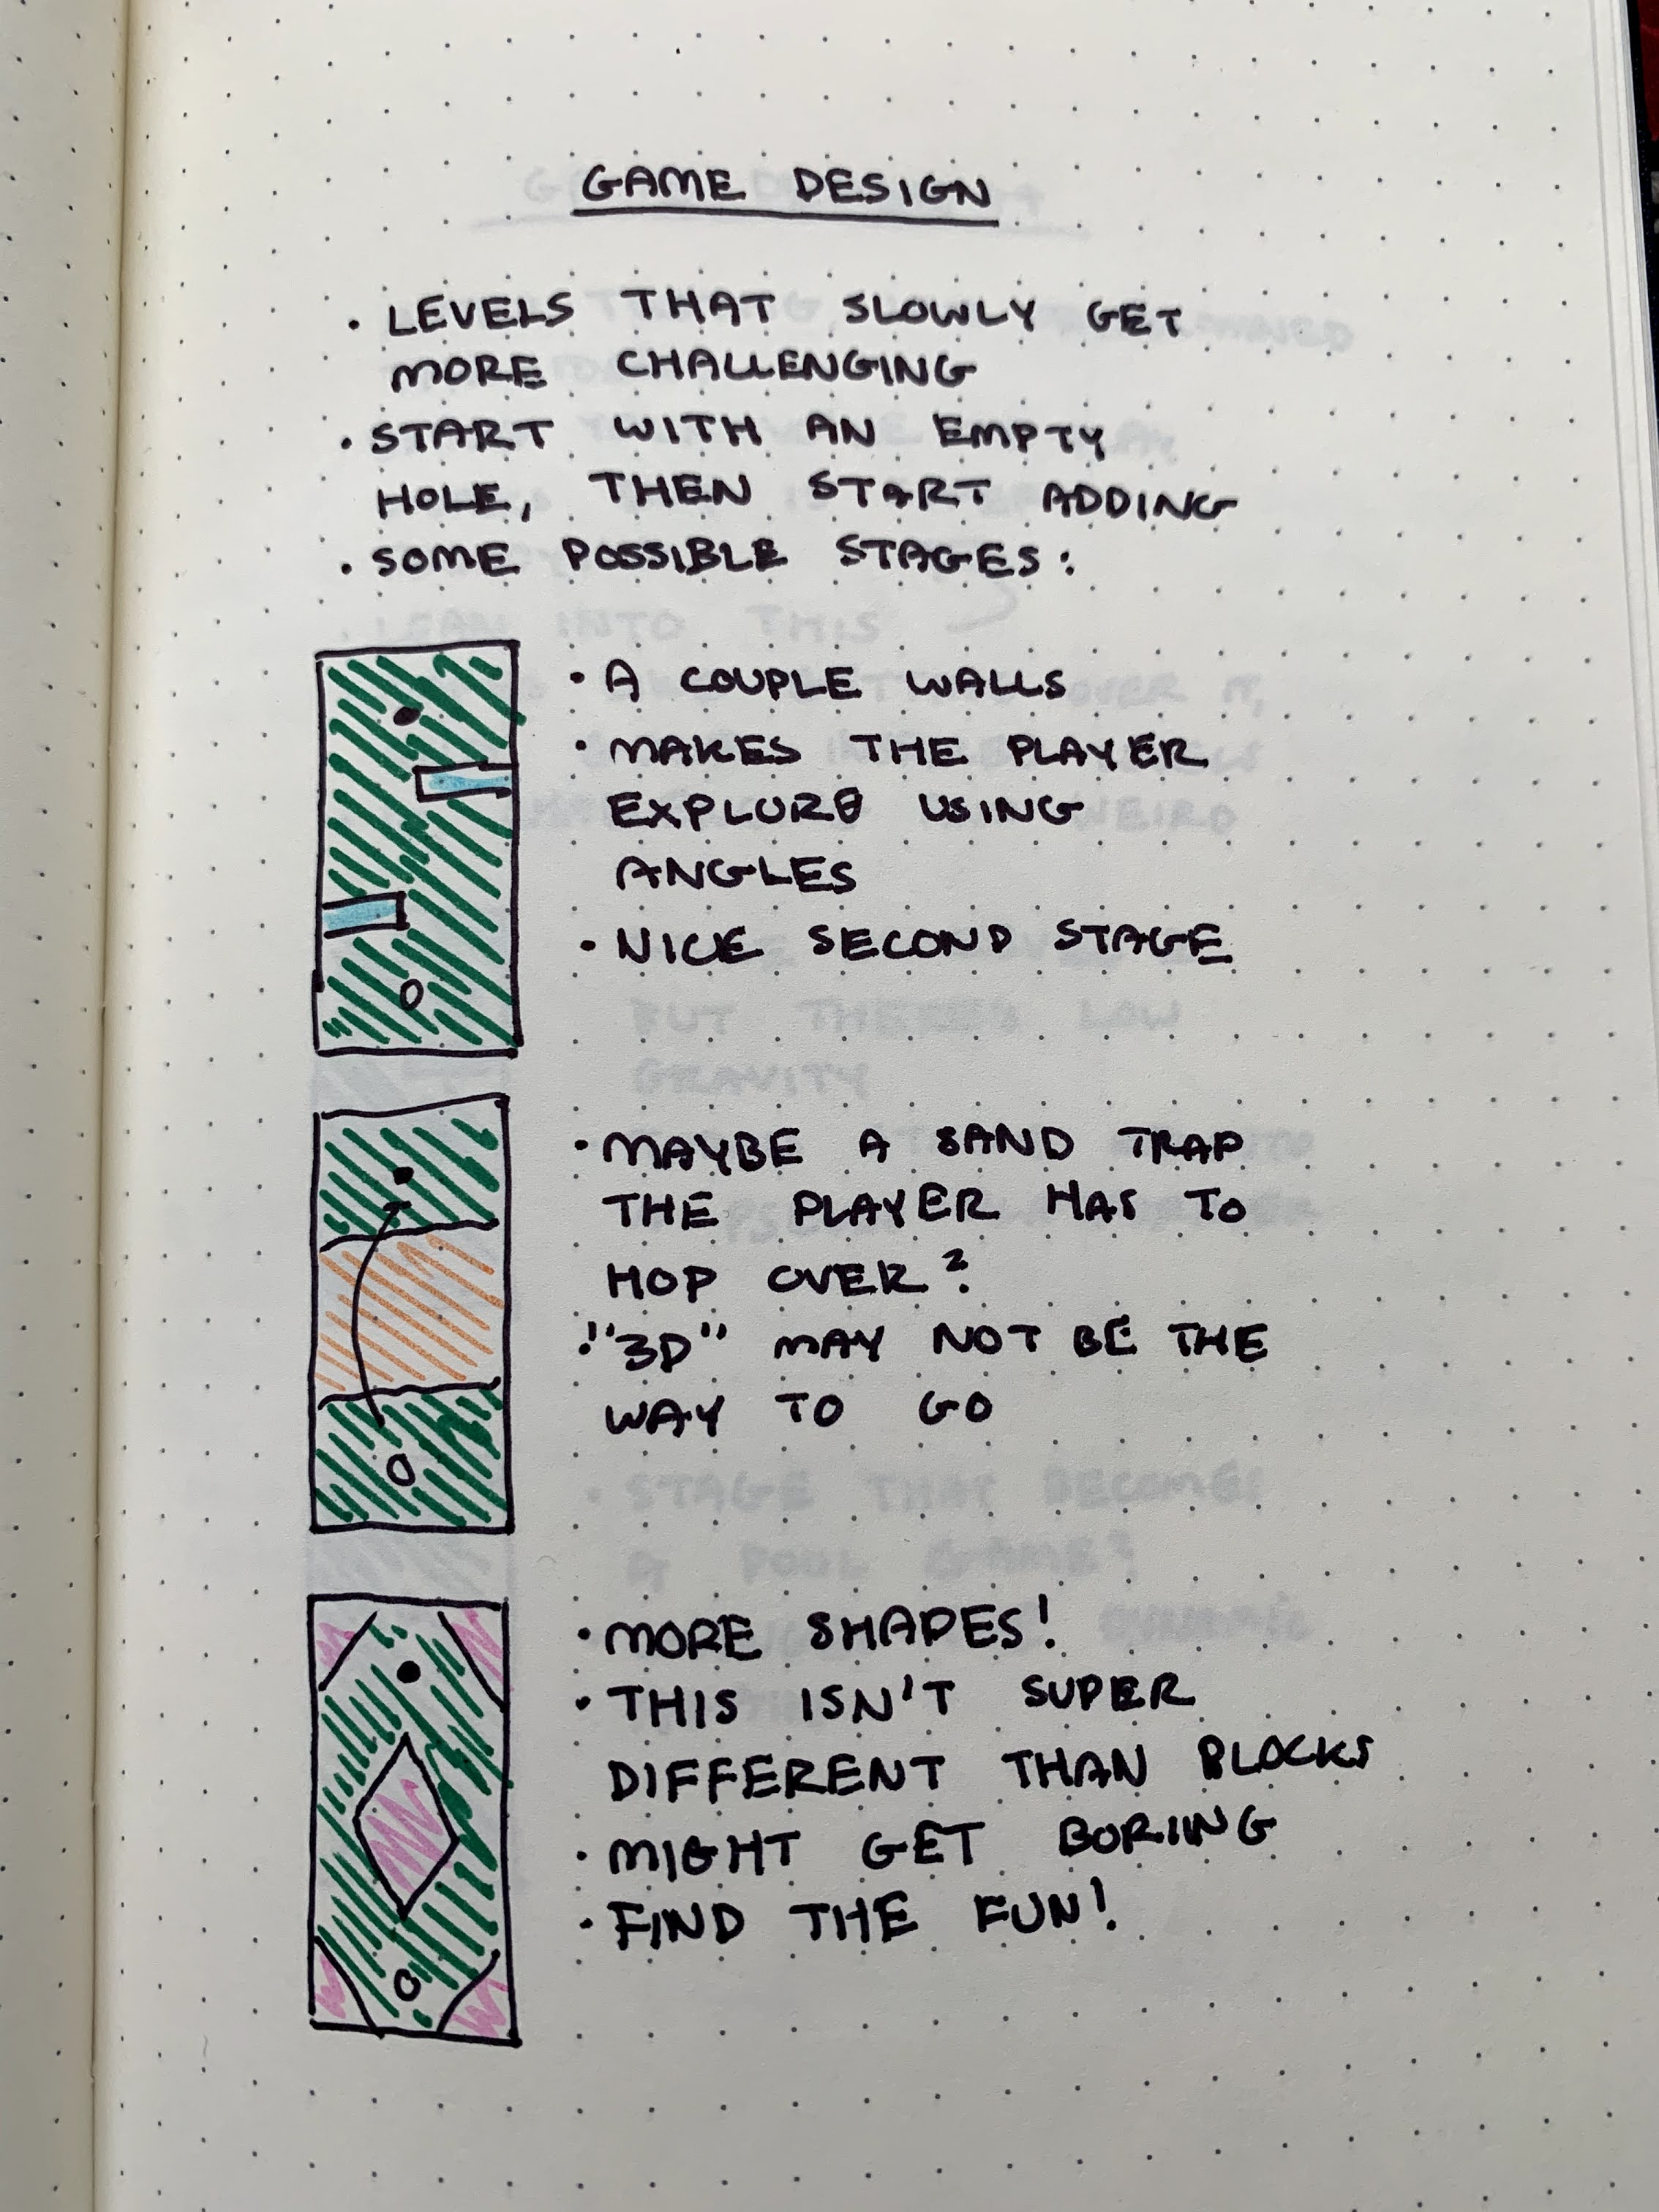 GAME DESIGN
• LEVELS THAT SLOWLY GET
MORE CHALLENGING
• START WITH AN EMPTY
HOLE, THEN START ADDING
• SOME POSSIBLE STAGES:
• A COUPLE WALLS
• MAKES THE PLAYER
EXPLORE USING
ANGLES
• NICE SECOND STAGE
• MAYBE A SAND TRAP
THE PLAYER HAS TO
HOP OVER?
• "3D" MAY NOT BE THE
WAY TO GO
• MORE SHAPES!
• THIS ISN'T SUPER
DIFFERENT THAN BLOCKS
• MIGHT GET BORIING
• FIND THE FUN!